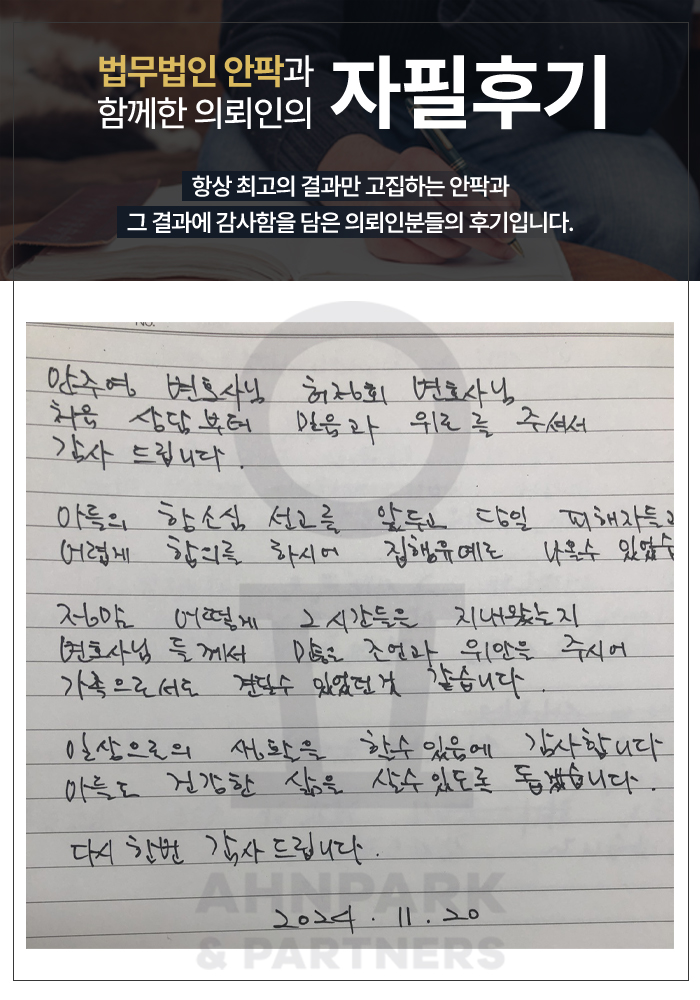 법무법인 안팍과
함께한 의뢰인의
자필후기
항상 최고의 결과만 고집하는 안팍과
그 결과에 감사함을 담은 의뢰인분들의 후기입니다.
NO.
안주영 변호사님 허정회 변호사님
처음 상담부터 믿음과 위로를 주셔서
감사 드립니다.
아들의 항소심 선고를 앞두고 당일 피해자들과
어렵게 합의를 하시어 집행유예로 나올수 있었습
정말 어떻게 그 시간들을 지내왔는지
변호사님 들께서 많은 조언과 위안을 주시어
가족으로서도 견딜수 있었던것 같습니다.
일상으로의 생활을 할수 있음에 감사합니다
아들도 건강한 삶을 살수 있도록 돕겠습니다.
다시 한번 감사 드립니다.
2024. 11. 20
AHNPARK
& PARTNERS